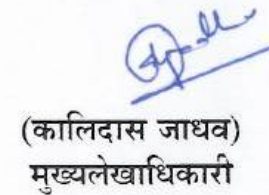 (कालिदास जाधव)
मुख्यलेखाधिकारी